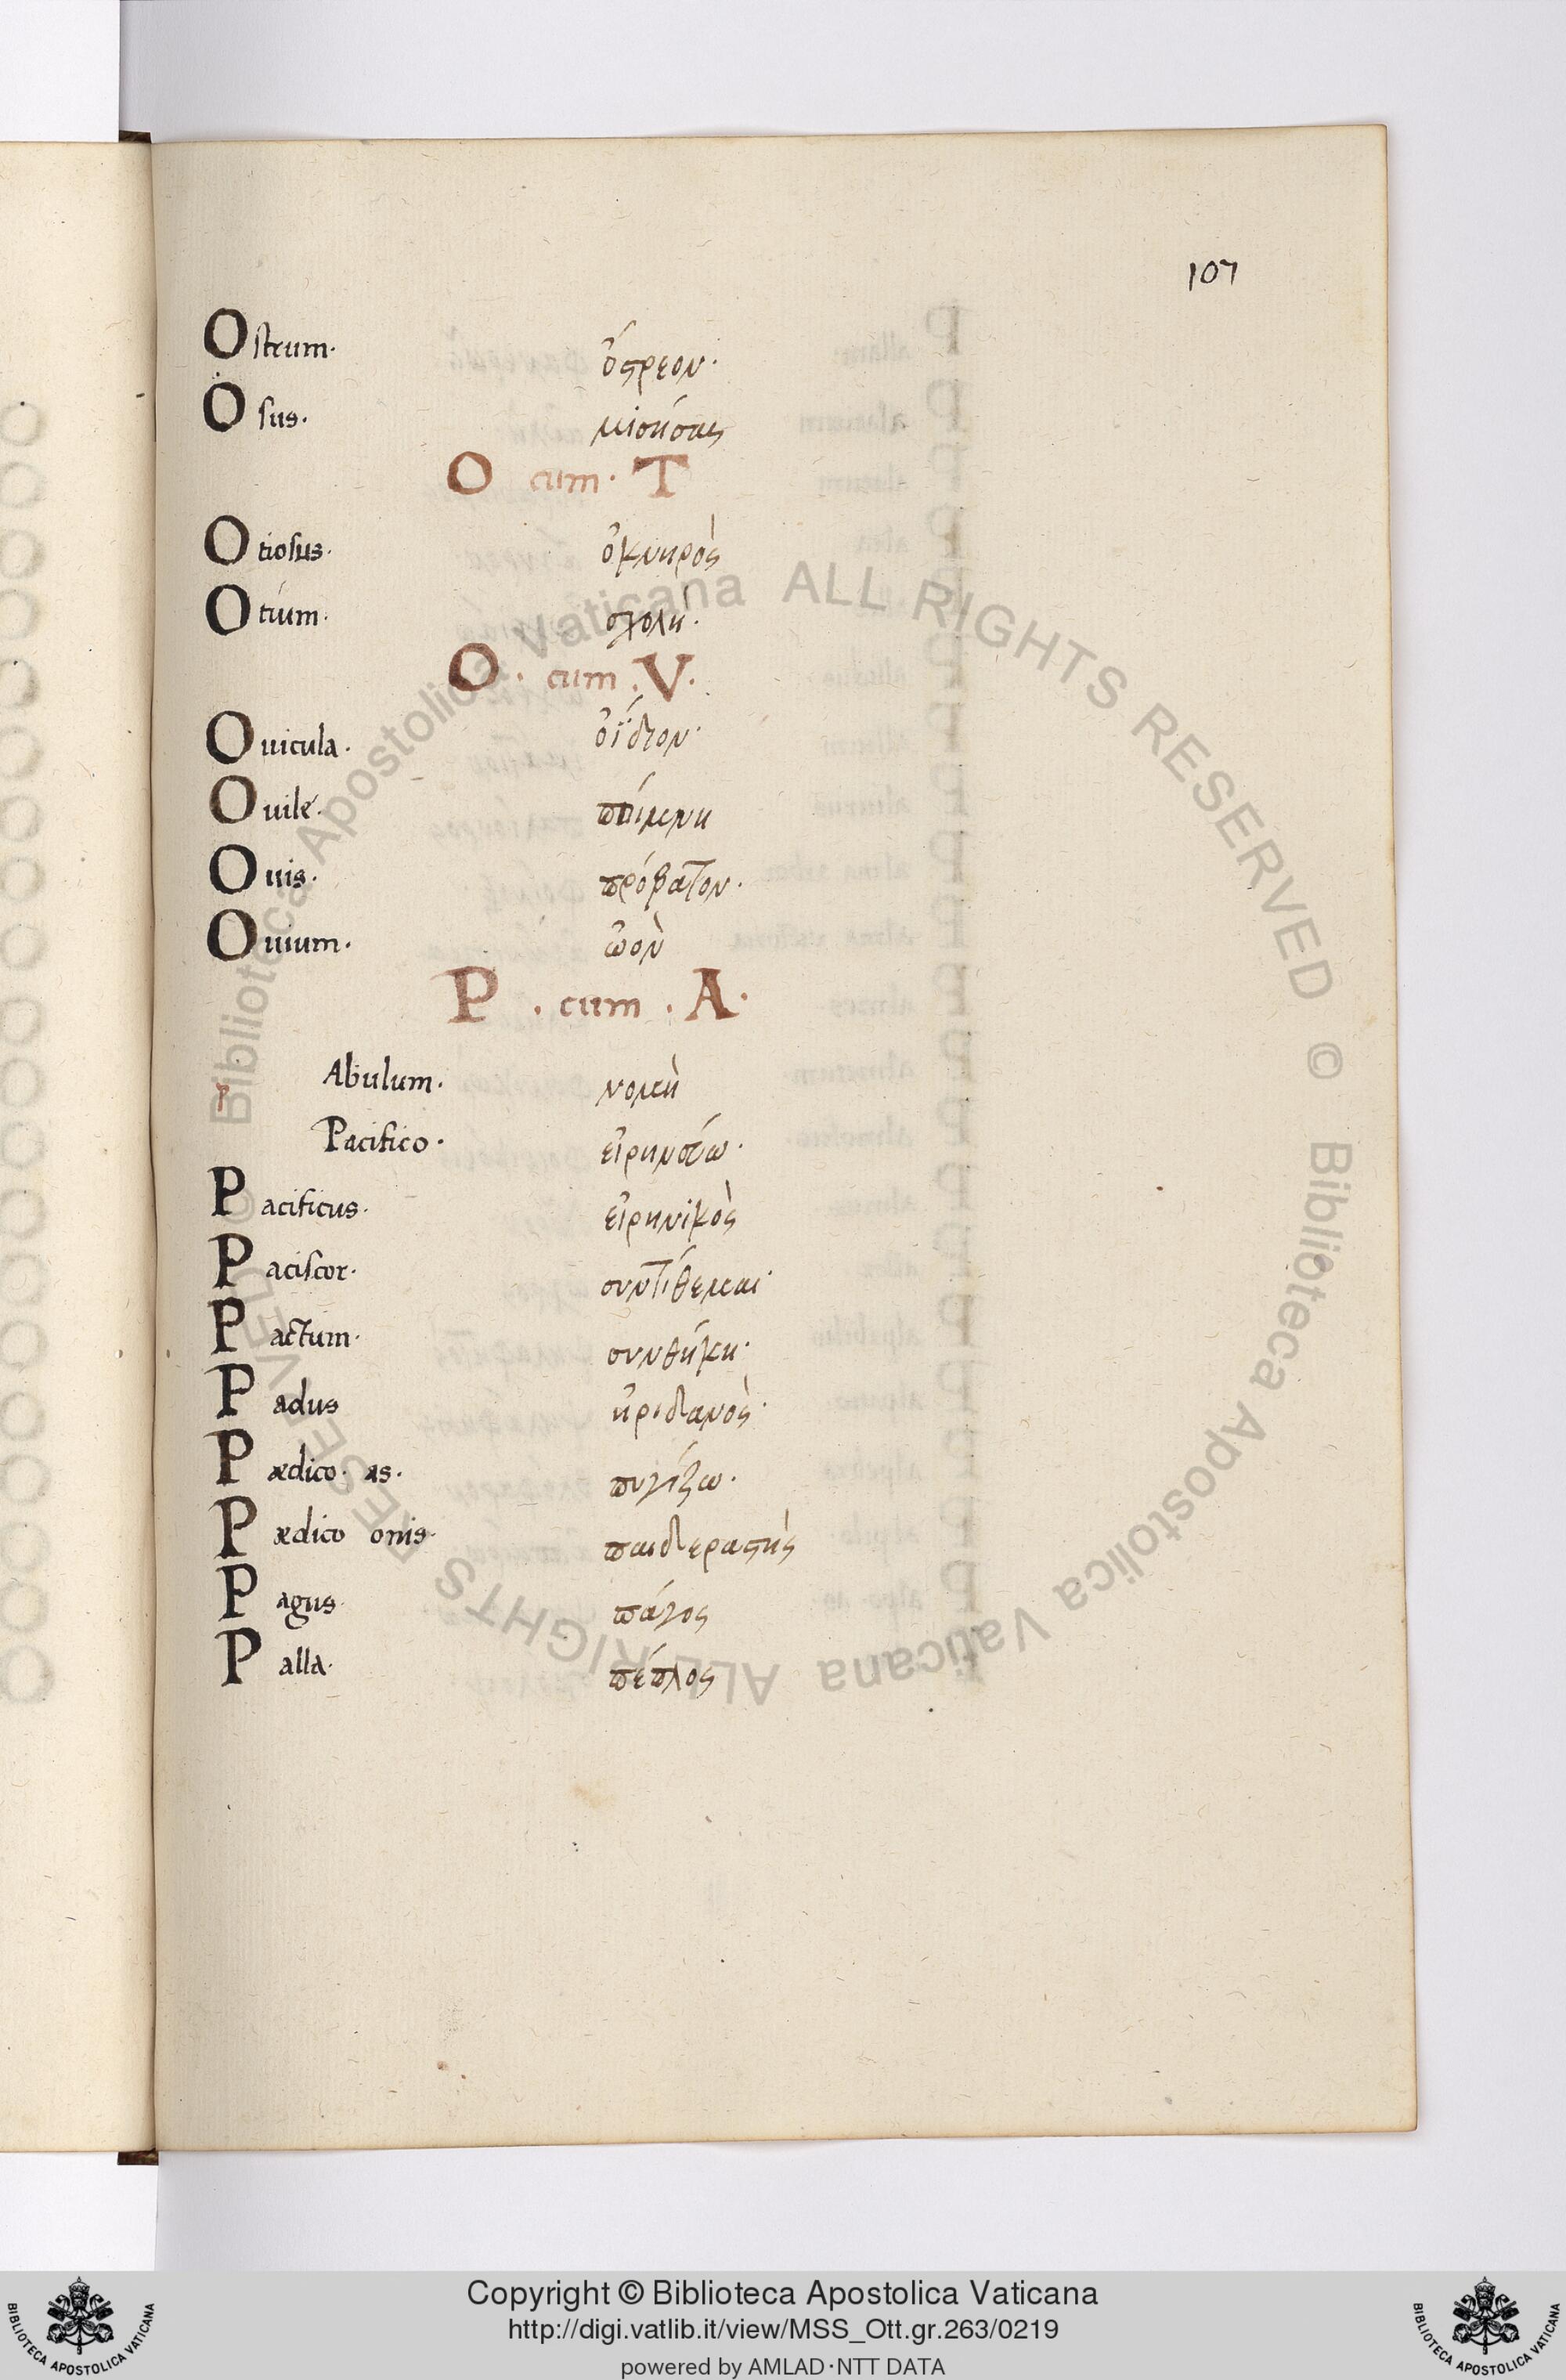 107
Ostrum· ὄστρεον·
Osus· μισήσας
O cum· T
Otiosus· ὀκνηρὸς
Otium· σχολὴ·
O· cum ·V·
Ouicula· ὀΐδιον·
Ouile· ποίμνη
Ouis· πρόβατον·
Ouium· ὠὸν
P · cum · A·
P Abulum· νομὴ
Pacifico· εἰρηνεύω·
Pacificus· εἰρηνικὸς
Paciscor· συντίθεμαι·
Pactum· συνθήκη·
Padus ἠριδανὸς·
Pædico· as· πυγίζω·
Pædico onis· παιδεραστὴς
Pagus· πάγος
Palla· πέπλος
Biblioteca Apostolica Vaticana ALL RIGHTS RESERVED ©
Biblioteca Apostolica Vaticana ALL RIGHTS RESERVED ©
Copyright © Biblioteca Apostolica Vaticana
http://digi.vatlib.it/view/MSS_Ott.gr.263/0219
powered by AMLAD·NTT DATA
BIBLIOTECA APOSTOLICA VATICANA
BIBLIOTECA APOSTOLICA VATICANA